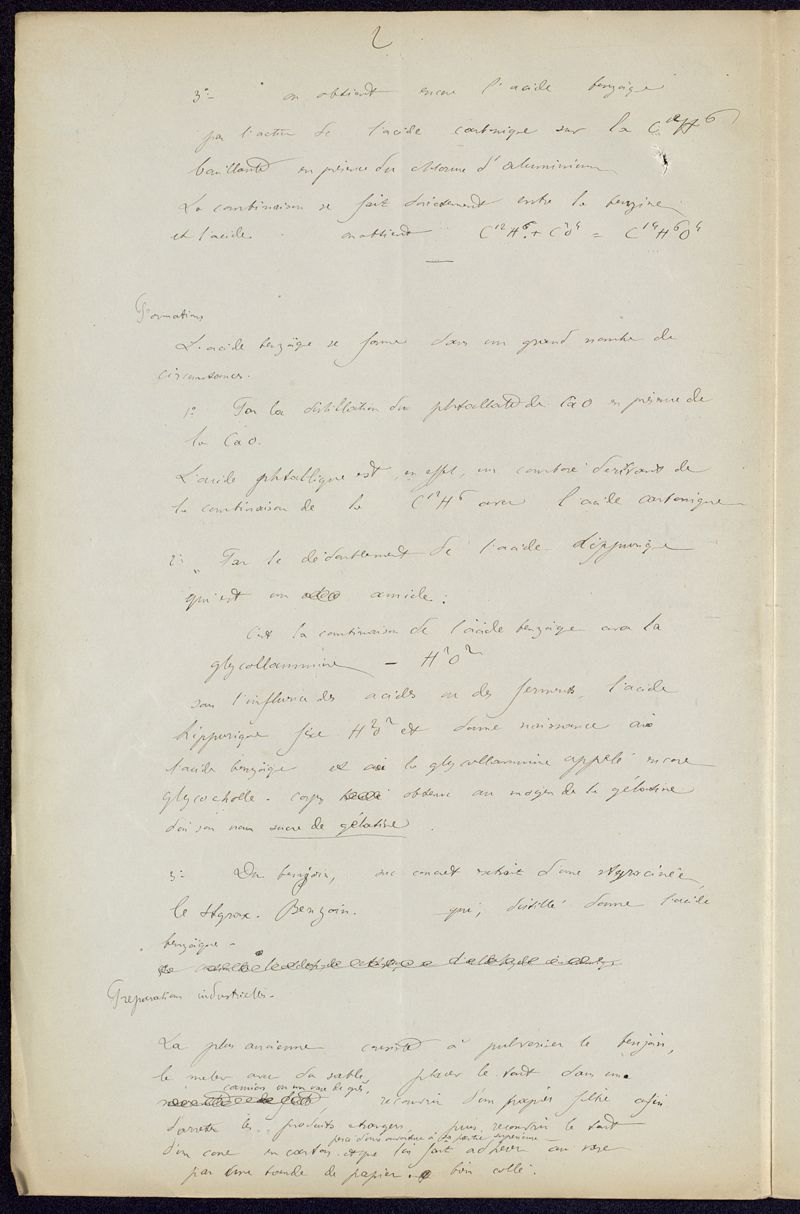 2
3°- on obtient encore l'acide benzoïque
par l'action de l'acide carbonique sur la C12H6
bouillante en présence du chlorure d'aluminium
La combinaison se fait directement entre la benzine
et l'acide. on obtient C12H6 + C2O4 = C14H6O4
Formations
L'acide benzoïque se forme dans un grand nombre de
circonstances.
1° Par la distillation du phtallate de CaO en présence de
la CaO.
L'acide phtallique est, en effet, un composé dérivant de
la combinaison de la C12H6 avec l'acide carbonique
2° Par le dédoublement de l'acide hippurique
qui est un amide :
C'est la combinaison de l'acide benzoïque avec la
glycollammine – H2O2
sous l'influence des acides ou des ferments, l'acide
hippurique fixe H2O2 et donne naissance à
l'acide benzoïque et à la glycollammine appelé encore
glycocholle. corps obtenu au moyen de la gélatine
d'où son nom sucre de gélatine.
3° Du benjoin, suc concret extrait d'une styracinée,
le Styrax. Benzoin. qui, distillé donne l'acide
benzoïque.
Préparations industrielles.
La plus ancienne consiste à pulvériser le benjoin,
le mêler avec du sable, placer le tout dans un
camion ou un vase de grès,
recouvrir d'un papier filtre afin
d'arrêter les produits étrangers, puis recouvrir le tout
percé d'une ouverture à sa partie supérieure
d'un cone en carton et que l'on fait adhérer au vase
par une bande de papier bien collé.